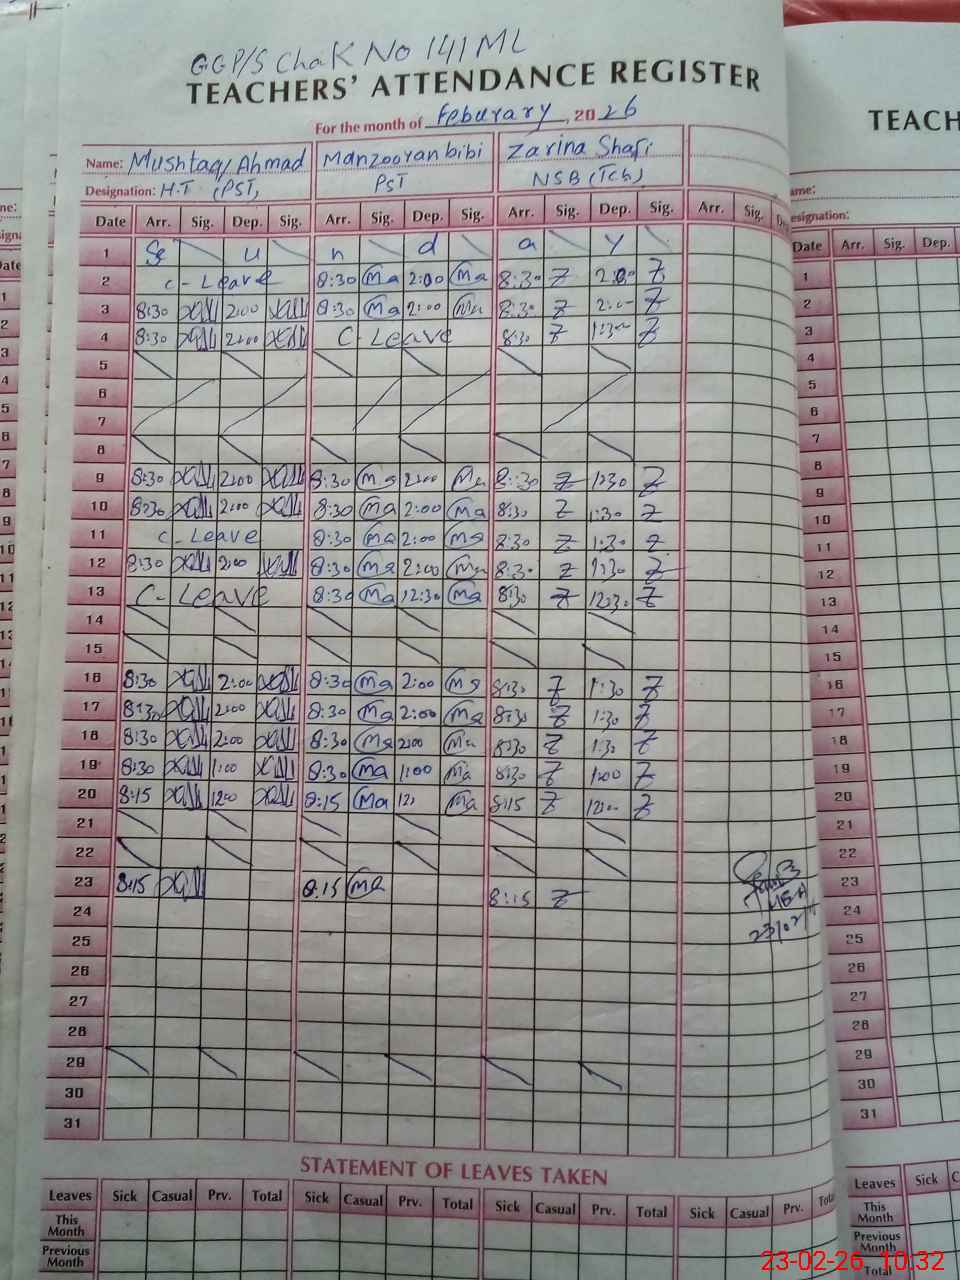 GGP/S Chak No 141 ML
TEACHERS' ATTENDANCE REGISTER
For the month of Feburary, 2026
Name: Mushtaq Ahmad Manzooran bibi Zarina Shafi
Designation: H.T (PST) PST NSB (Tch)
Date Arr. Sig. Dep. Sig. Arr. Sig. Dep. Sig. Arr. Sig. Dep. Sig. Arr. Sig.
1 S u n d a y
2 C-Leave 8:30 Ma 2:00 Ma 8:30 Z 2:00 Z
3 8:30 2:00 8:30 Ma 2:00 Ma 8:30 Z 2:00 Z
4 8:30 2:00 C-Leave 8:30 Z 1:30 Z
5
6
7
8
9 8:30 2:00 8:30 Ma 2:00 Ma 8:30 Z 1:30 Z
10 8:30 2:00 8:30 Ma 2:00 Ma 8:30 Z 1:30 Z
11 C-Leave 8:30 Ma 2:00 Ma 8:30 Z 1:30 Z
12 8:30 2:00 8:30 Ma 2:00 Ma 8:30 Z 1:30 Z
13 C-Leave 8:30 Ma 12:30 Ma 8:30 Z 12:30 Z
14
15
16 8:30 2:00 8:30 Ma 2:00 Ma 8:30 Z 1:30 Z
17 8:30 2:00 8:30 Ma 2:00 Ma 8:30 Z 1:30 Z
18 8:30 2:00 8:30 Ma 2:00 Ma 8:30 Z 1:30 Z
19 8:30 1:00 8:30 Ma 1:00 Ma 8:30 Z 1:00 Z
20 8:15 1200 8:15 Ma 12 Ma 8:15 Z 12:00 Z
21
22
23 8:15 8:15 Ma 8:15 Z
24
25
26
27
28
29
30
31
STATEMENT OF LEAVES TAKEN
Leaves Sick Casual Prv. Total Sick Casual Prv. Total Sick Casual Prv. Total Sick Casual Prv. Total
This Month
Previous Month
TEACH
Name:
Designation:
Date Arr. Sig. Dep.
1
2
3
4
5
6
7
8
9
10
11
12
13
14
15
16
17
18
19
20
21
22
23
24
25
26
27
28
29
30
31
Leaves Sick
This Month
Previous Month
Total
23-02-26, 10:32